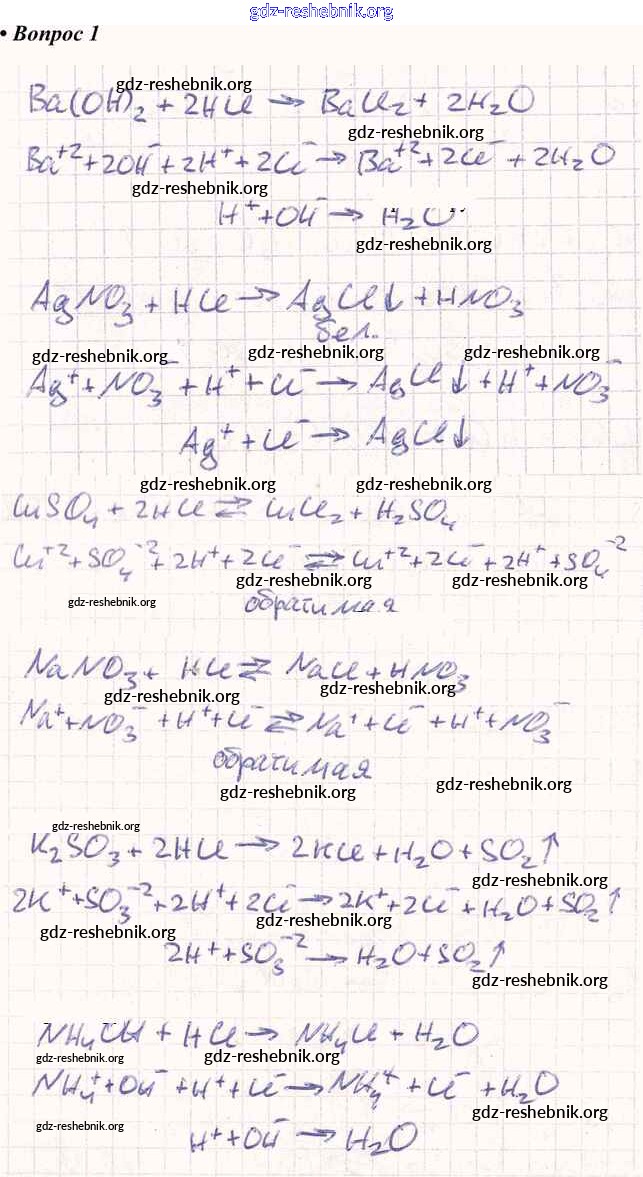 gdz-reshebnik.org
• Вопрос 1
gdz-reshebnik.org
Ba(OH)₂ + 2HCl → BaCl₂ + 2H₂O
gdz-reshebnik.org
Ba⁺² + 2OH⁻ + 2H⁺ + 2Cl⁻ → Ba⁺² + 2Cl⁻ + 2H₂O
gdz-reshebnik.org
H⁺ + OH⁻ → H₂O
gdz-reshebnik.org
AgNO₃ + HCl → AgCl↓ + HNO₃
бел.
gdz-reshebnik.org gdz-reshebnik.org gdz-reshebnik.org
Ag⁺ + NO₃⁻ + H⁺ + Cl⁻ → AgCl↓ + H⁺ + NO₃⁻
Ag⁺ + Cl⁻ → AgCl↓
gdz-reshebnik.org gdz-reshebnik.org
CuSO₄ + 2HCl ⇄ CuCl₂ + H₂SO₄
Cu⁺² + SO₄⁻² + 2H⁺ + 2Cl⁻ ⇄ Cu⁺² + 2Cl⁻ + 2H⁺ + SO₄⁻²
gdz-reshebnik.org gdz-reshebnik.org
gdz-reshebnik.org обратимая
NaNO₃ + HCl ⇄ NaCl + HNO₃
gdz-reshebnik.org gdz-reshebnik.org
Na⁺ + NO₃⁻ + H⁺ + Cl⁻ ⇄ Na⁺ + Cl⁻ + H⁺ + NO₃⁻
обратимая
gdz-reshebnik.org gdz-reshebnik.org
gdz-reshebnik.org
K₂SO₃ + 2HCl → 2KCl + H₂O + SO₂↑
gdz-reshebnik.org
2K⁺ + SO₃⁻² + 2H⁺ + 2Cl⁻ → 2K⁺ + 2Cl⁻ + H₂O + SO₂↑
gdz-reshebnik.org gdz-reshebnik.org
2H⁺ + SO₃⁻² → H₂O + SO₂↑
gdz-reshebnik.org
NH₄OH + HCl → NH₄Cl + H₂O
gdz-reshebnik.org gdz-reshebnik.org
NH₄⁺ + OH⁻ + H⁺ + Cl⁻ → NH₄⁺ + Cl⁻ + H₂O
gdz-reshebnik.org gdz-reshebnik.org
H⁺ + OH⁻ → H₂O